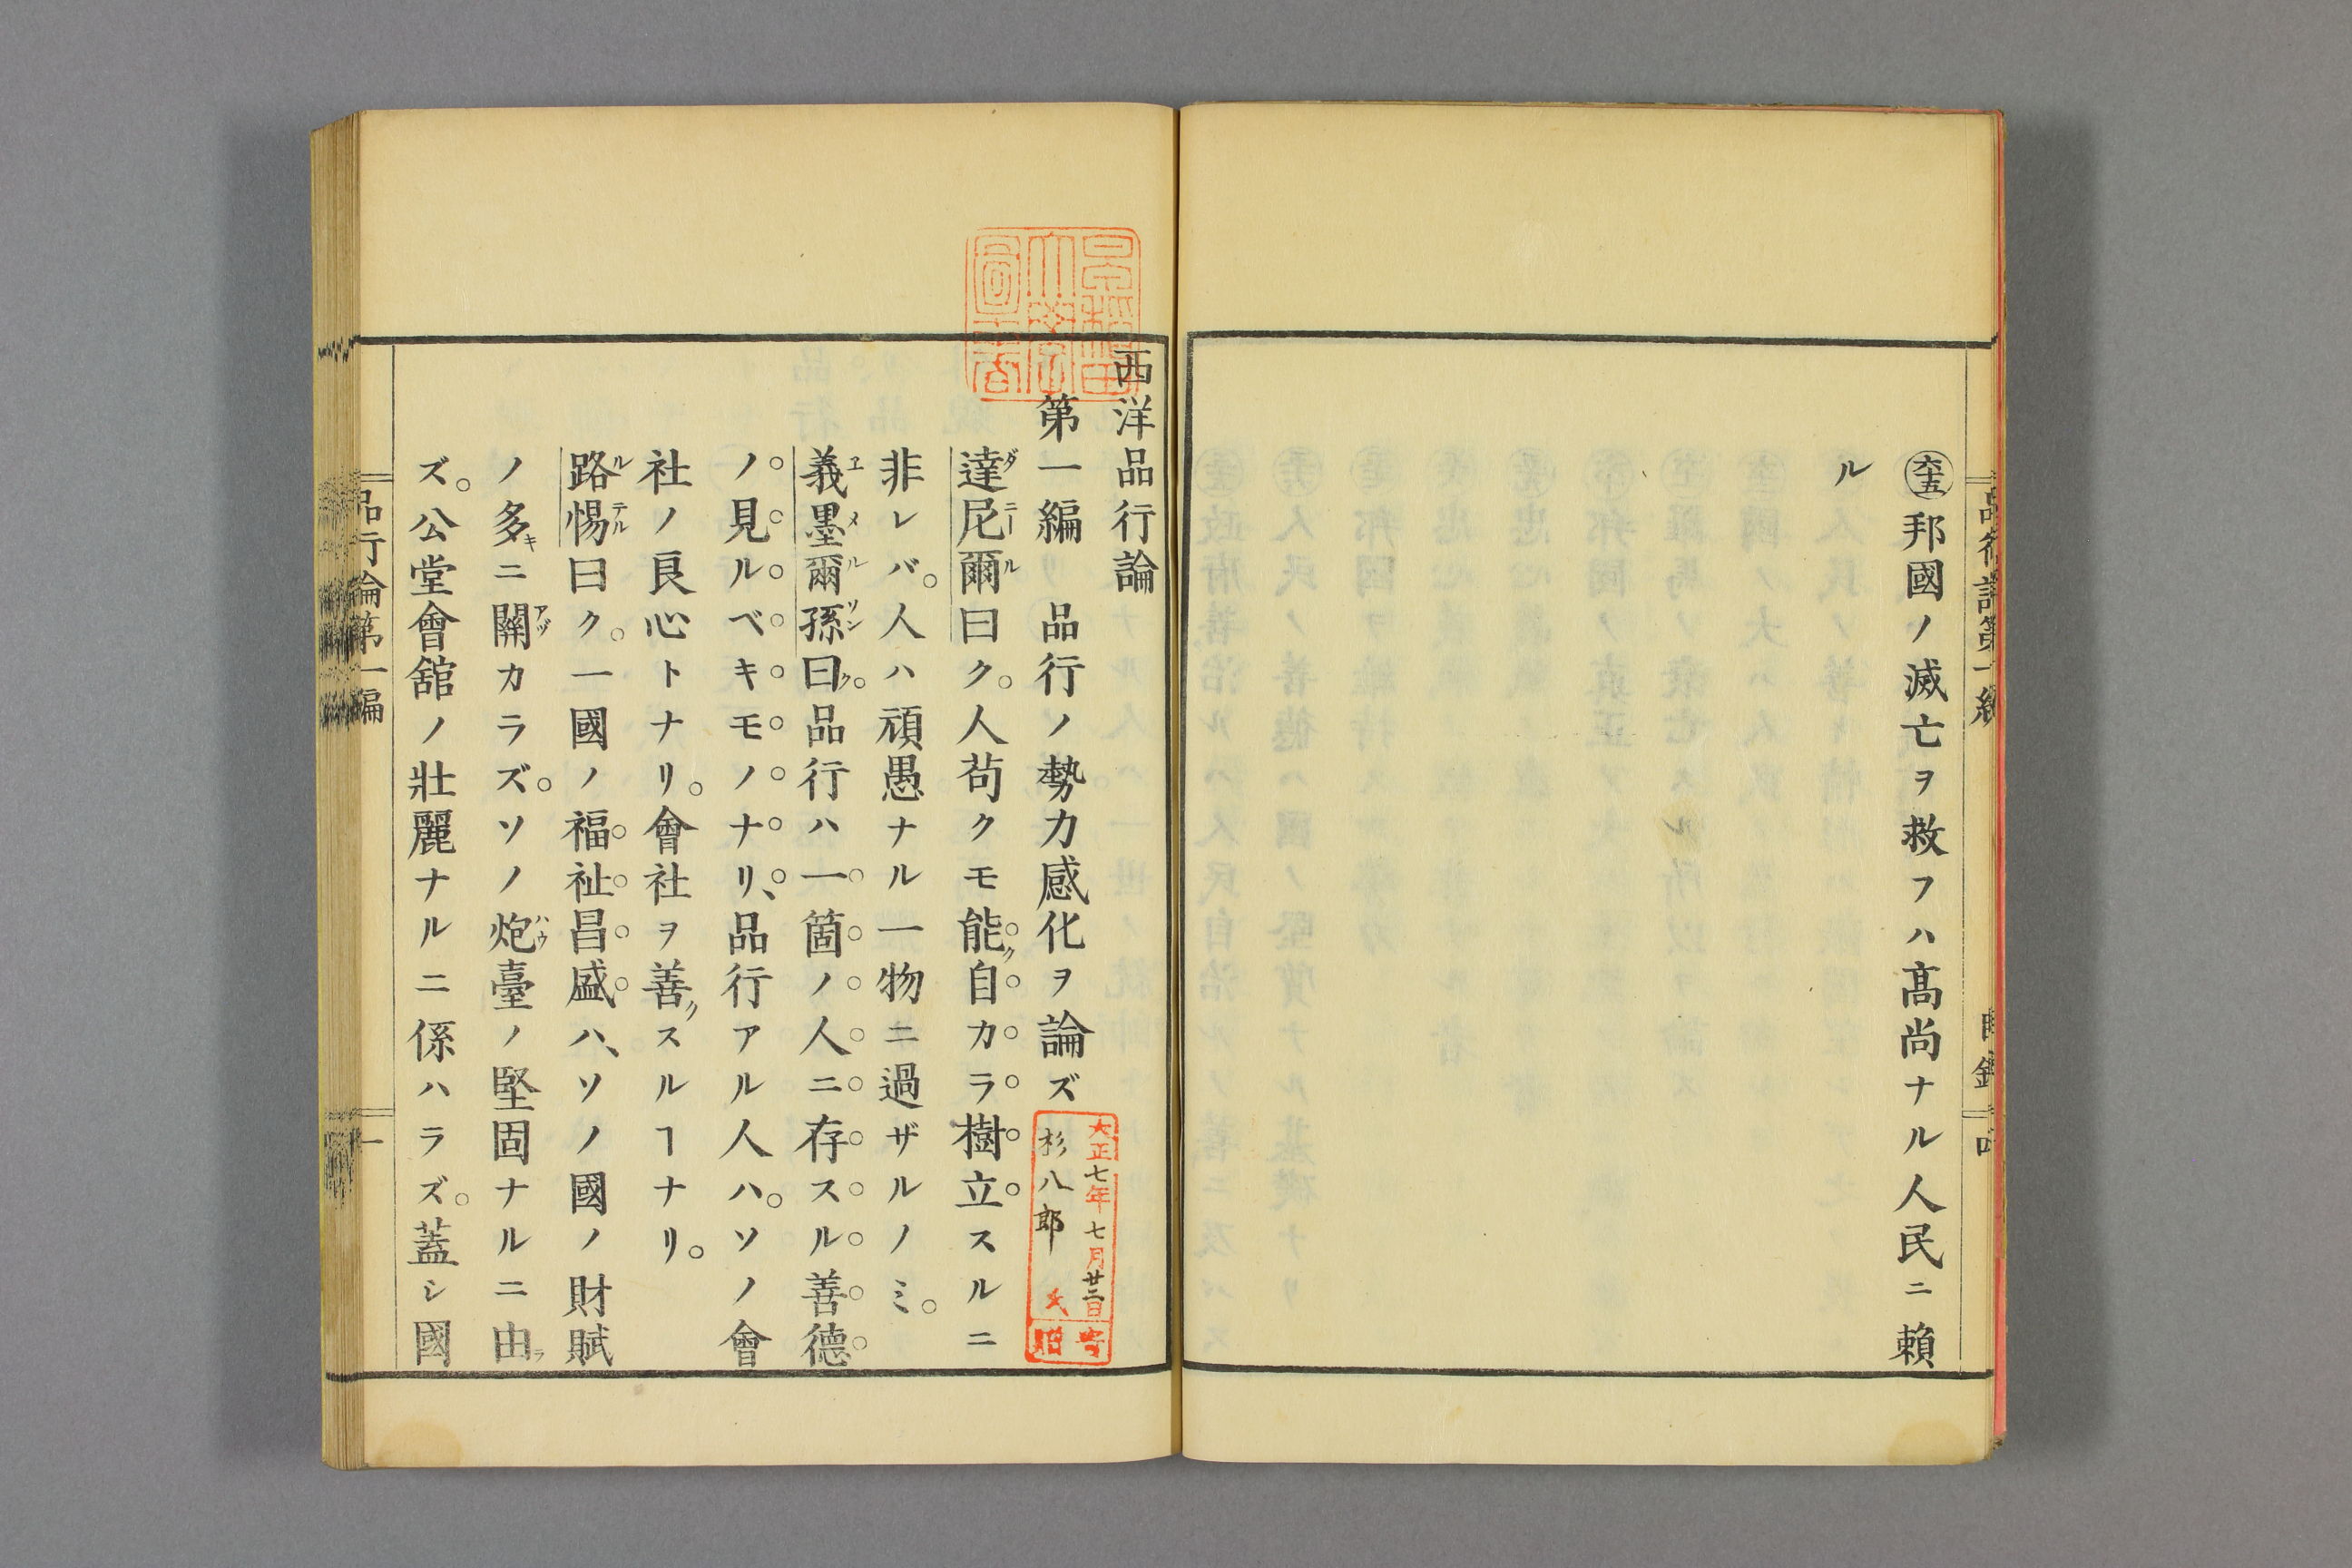 ㊅㊄邦國ノ滅亡ヲ救フハ高尚ナル人民ニ賴
ル
目錄
西洋品行論
第一編 品行ノ勢力感化ヲ論ズ
達尼爾曰ク。人苟クモ能ク自カラ樹立スルニ
ダニールル
非レバ。人ハ頑愚ナル一物ニ過ザルノミ。
義墨爾孫曰ク。品行ハ一箇ノ人ニ存スル善德
ヱメルソン
ノ見ルベキモノナリ、品行アル人ハ。ソノ會
社ノ良心トナリ。會社ヲ善クスルヿナリ。
路惕曰ク。一國ノ福祉昌盛ハ、ソノ國ノ財賦
ルテル
ノ多キニ關カラズ。ソノ炮臺ノ堅固ナルニ由ラ
アヅ
ハウ
ズ。公堂會舘ノ壯麗ナルニ係ハラズ。蓋シ國
品行論第一編
一
早稲田大學圖書
大正七年七月廿三日
杉八郎氏
寄贈